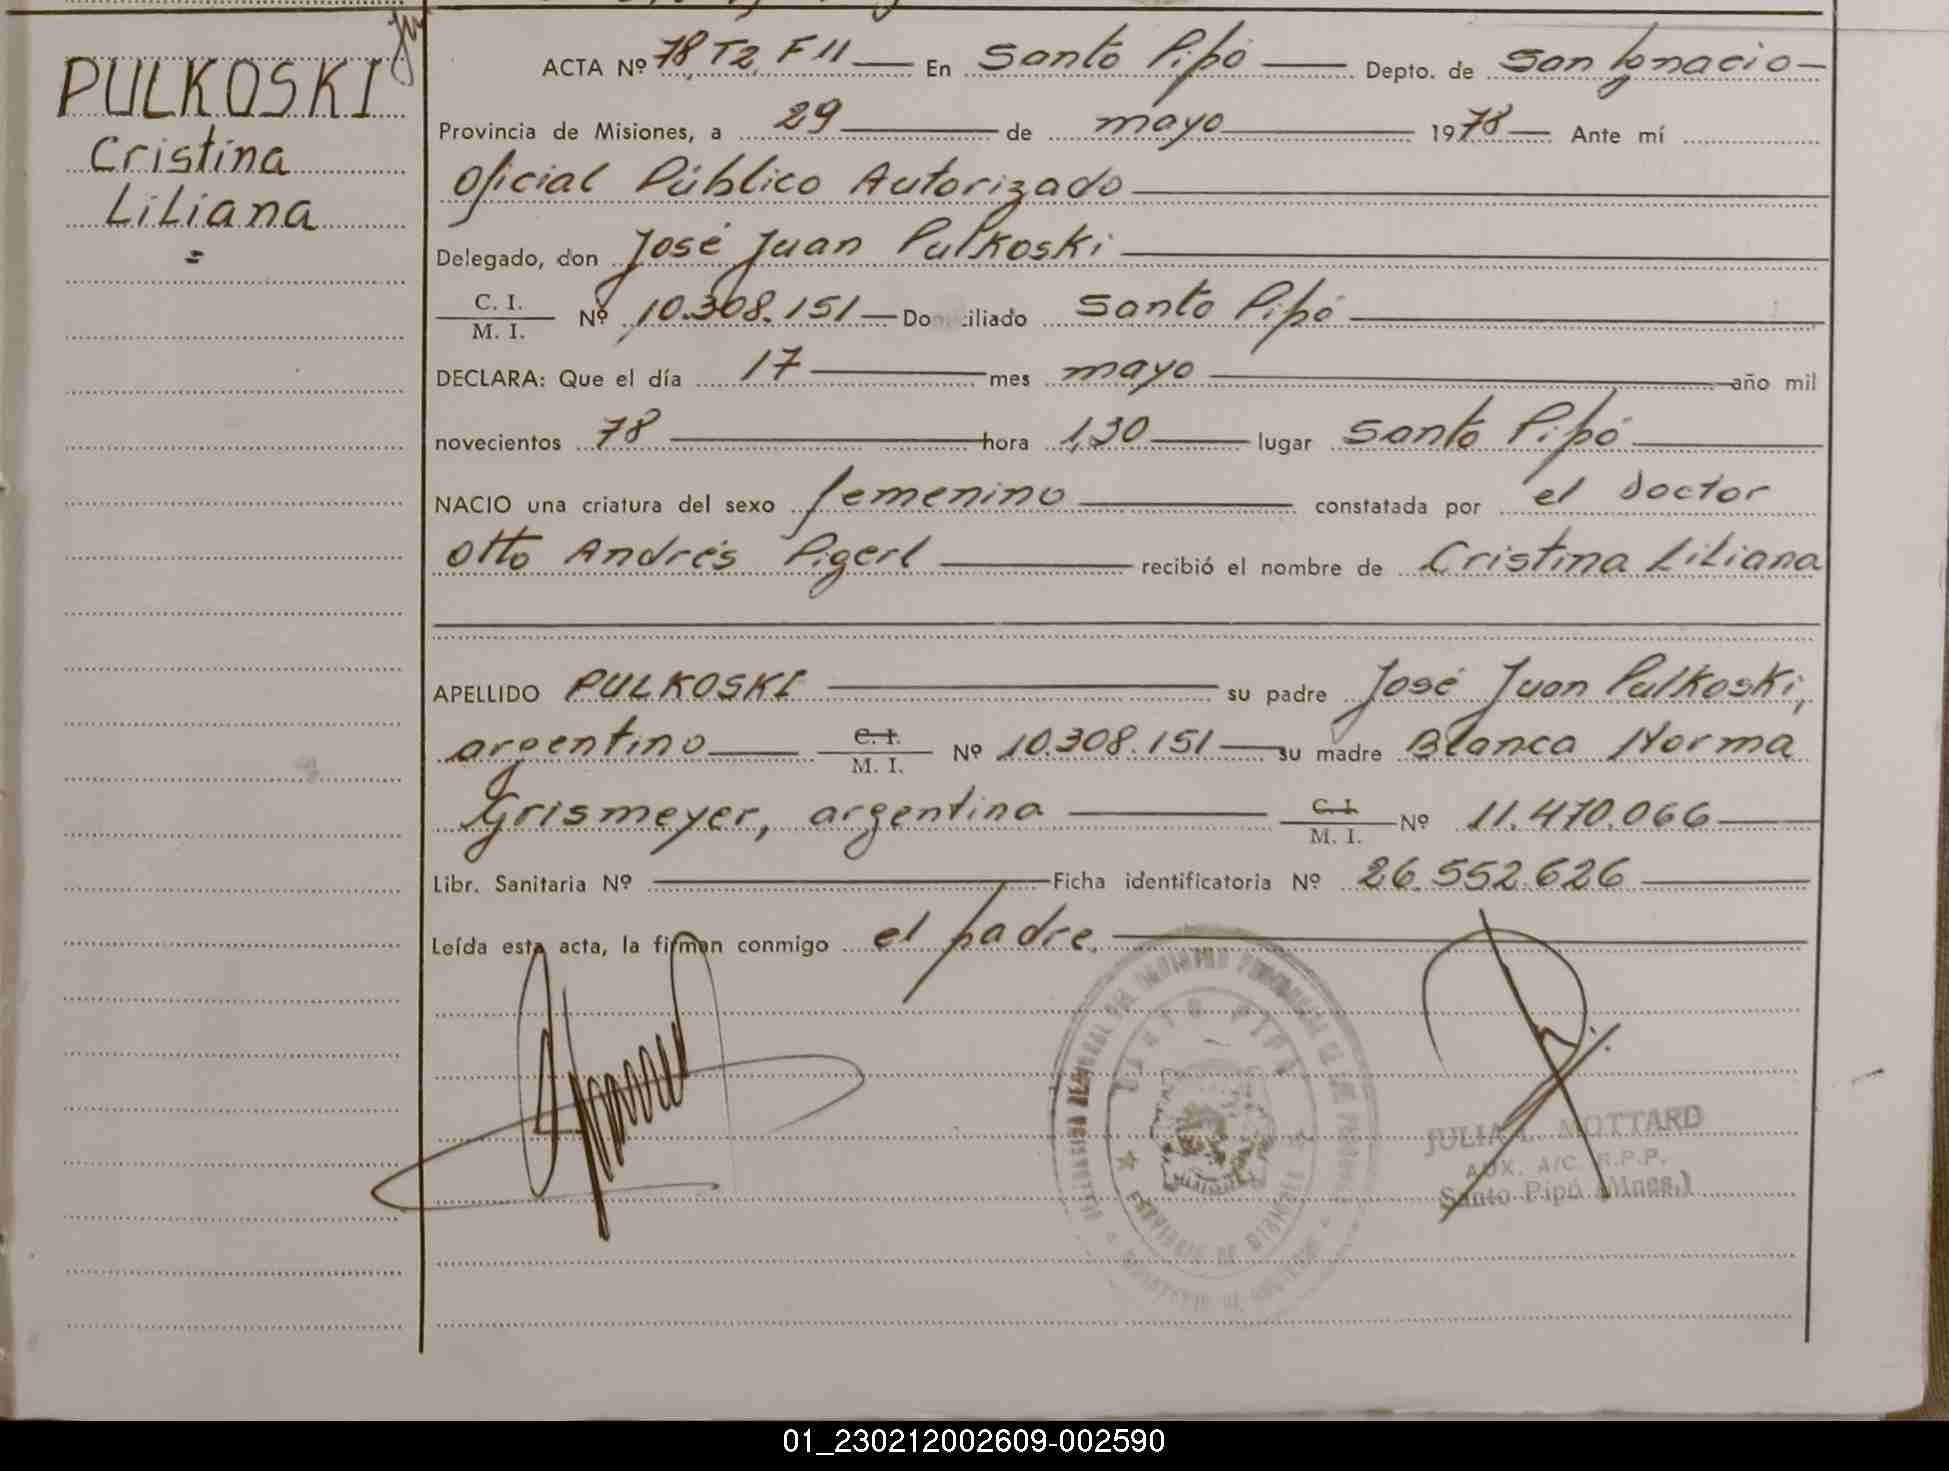 PULKOSKI
Cristina
Liliana
ACTA Nº 78, T2, F 11 En Santo Pipó Depto. de San Ignacio
Provincia de Misiones, a 29 de mayo 1978 Ante mí
Oficial Público Autorizado
Delegado, don José Juan Pulkoski
C. I.
M. I. Nº 10.308.151 Domiciliado Santo Pipó
DECLARA: Que el día 17 mes mayo año mil
novecientos 78 hora 1,30 lugar Santo Pipó
NACIO una criatura del sexo femenino constatada por el Doctor
Otto Andrés Pigerl recibió el nombre de Cristina Liliana
APELLIDO PULKOSKI su padre José Juan Pulkoski,
argentino C. I. M. I. Nº 10.308.151 su madre Blanca Norma
Grismeyer, argentina C. I. M. I. Nº 11.470.066
Libr. Sanitaria Nº Ficha identificatoria Nº 26.552.626
Leída esta acta, la firman conmigo el padre.
SANTO PIPÓ
JULIA L. MOTTARD
AUX. A/C. R.P.P.
Santo Pipó (Mnes.)
01_230212002609-002590